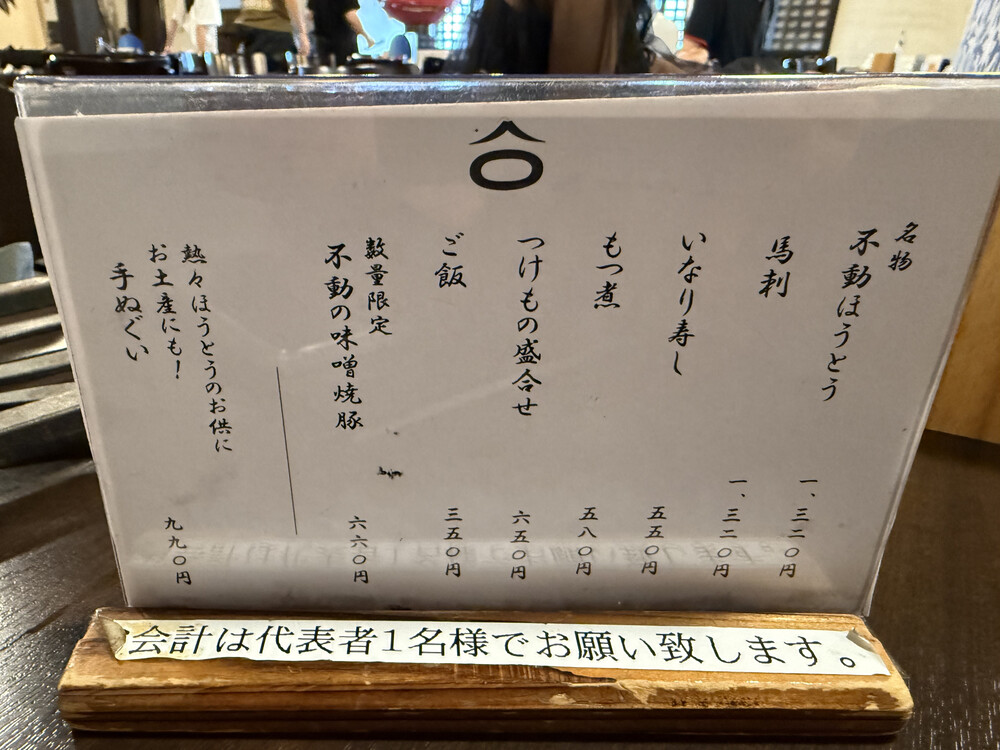 名物
不動ほうとう
一、三二〇円
馬刺
一、三二〇円
いなり寿し
五五〇円
もつ煮
五八〇円
つけもの盛合せ
六五〇円
ご飯
三五〇円
数量限定
不動の味噌焼豚
六六〇円
熱々ほうとうのお供に
お土産にも！
手ぬぐい
九九〇円
会計は代表者1名様でお願い致します。